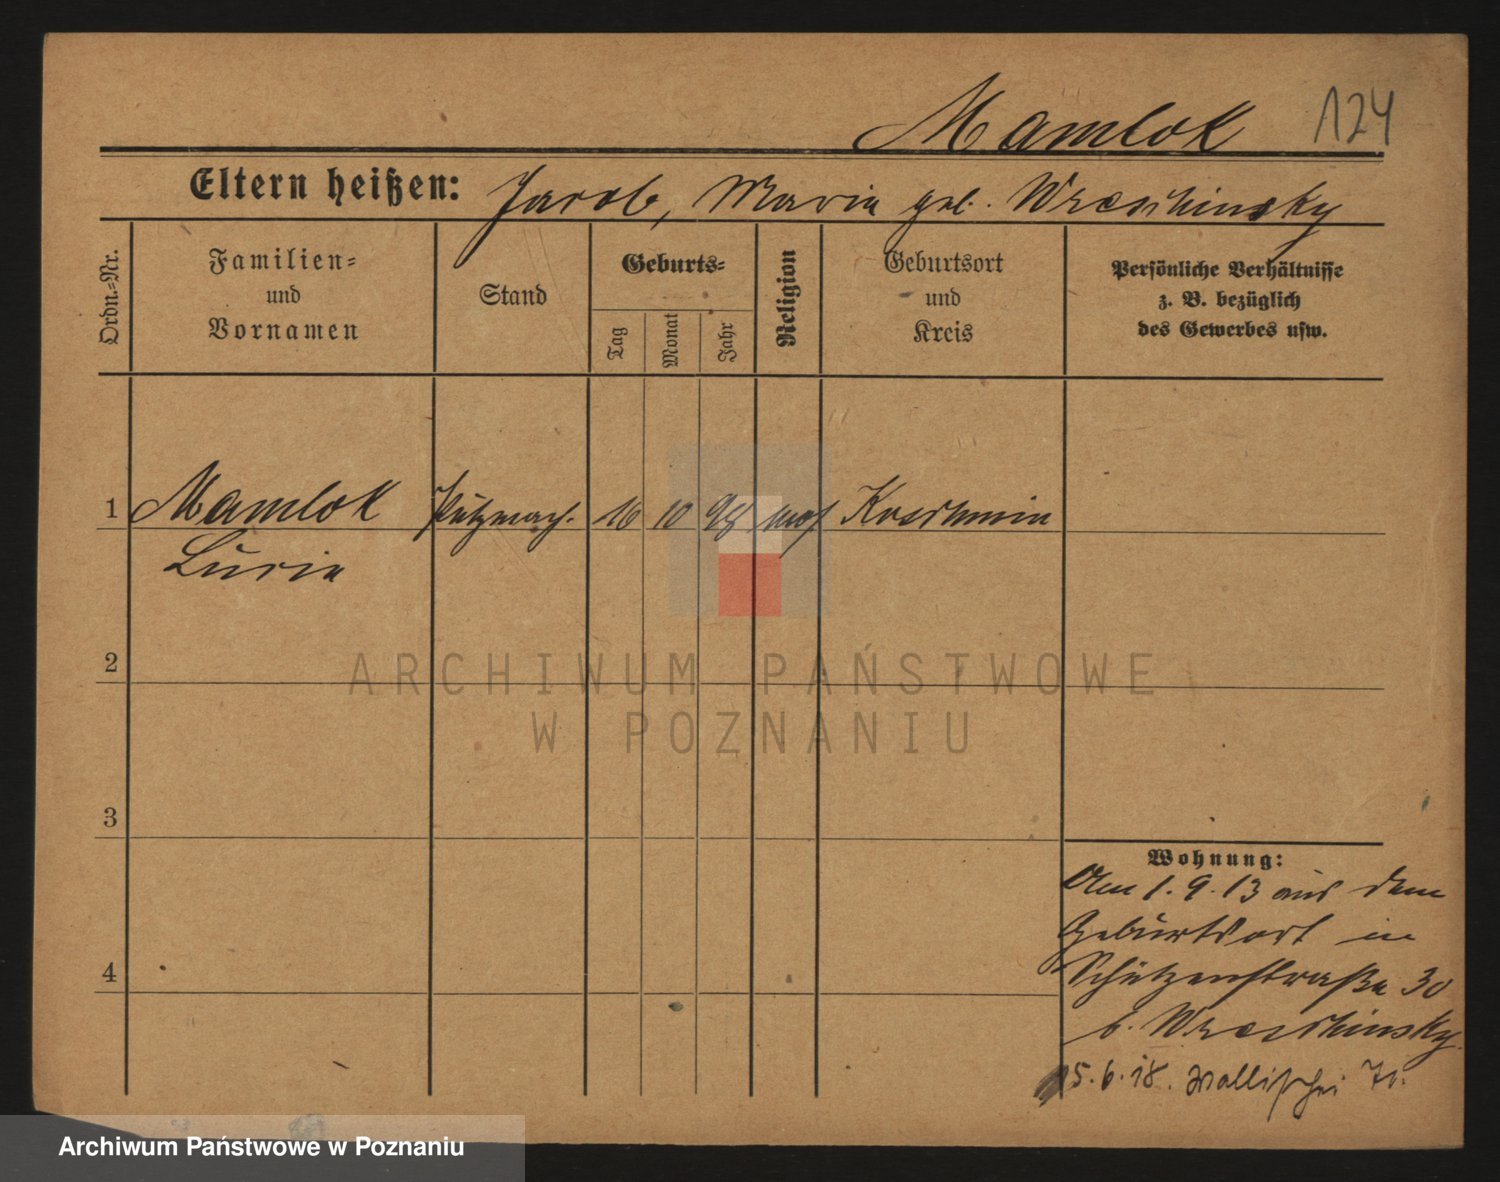 Mamlok 124
Eltern heißen: Jacob, Maria geb. Wreschinsky
Ordn.-Nr.
Familien-
und
Vornamen
Stand
Geburts-
Tag
Monat
Jahr
Religion
Geburtsort
und
Kreis
Persönliche Verhältnisse
z. B. bezüglich
des Gewerbes usw.
1 Mamlok Putzmach. 16 10 98 mos Koschmin
Lucia
2
3
4
Wohnung:
Am 1.9.13 aus dem
Geburtsort in
Schützenstraße 30
b. Wreschinsky.
15.6.18. Wallischei
ARCHIWUM PAŃSTWOWE
W POZNANIU
Archiwum Państwowe w Poznaniu